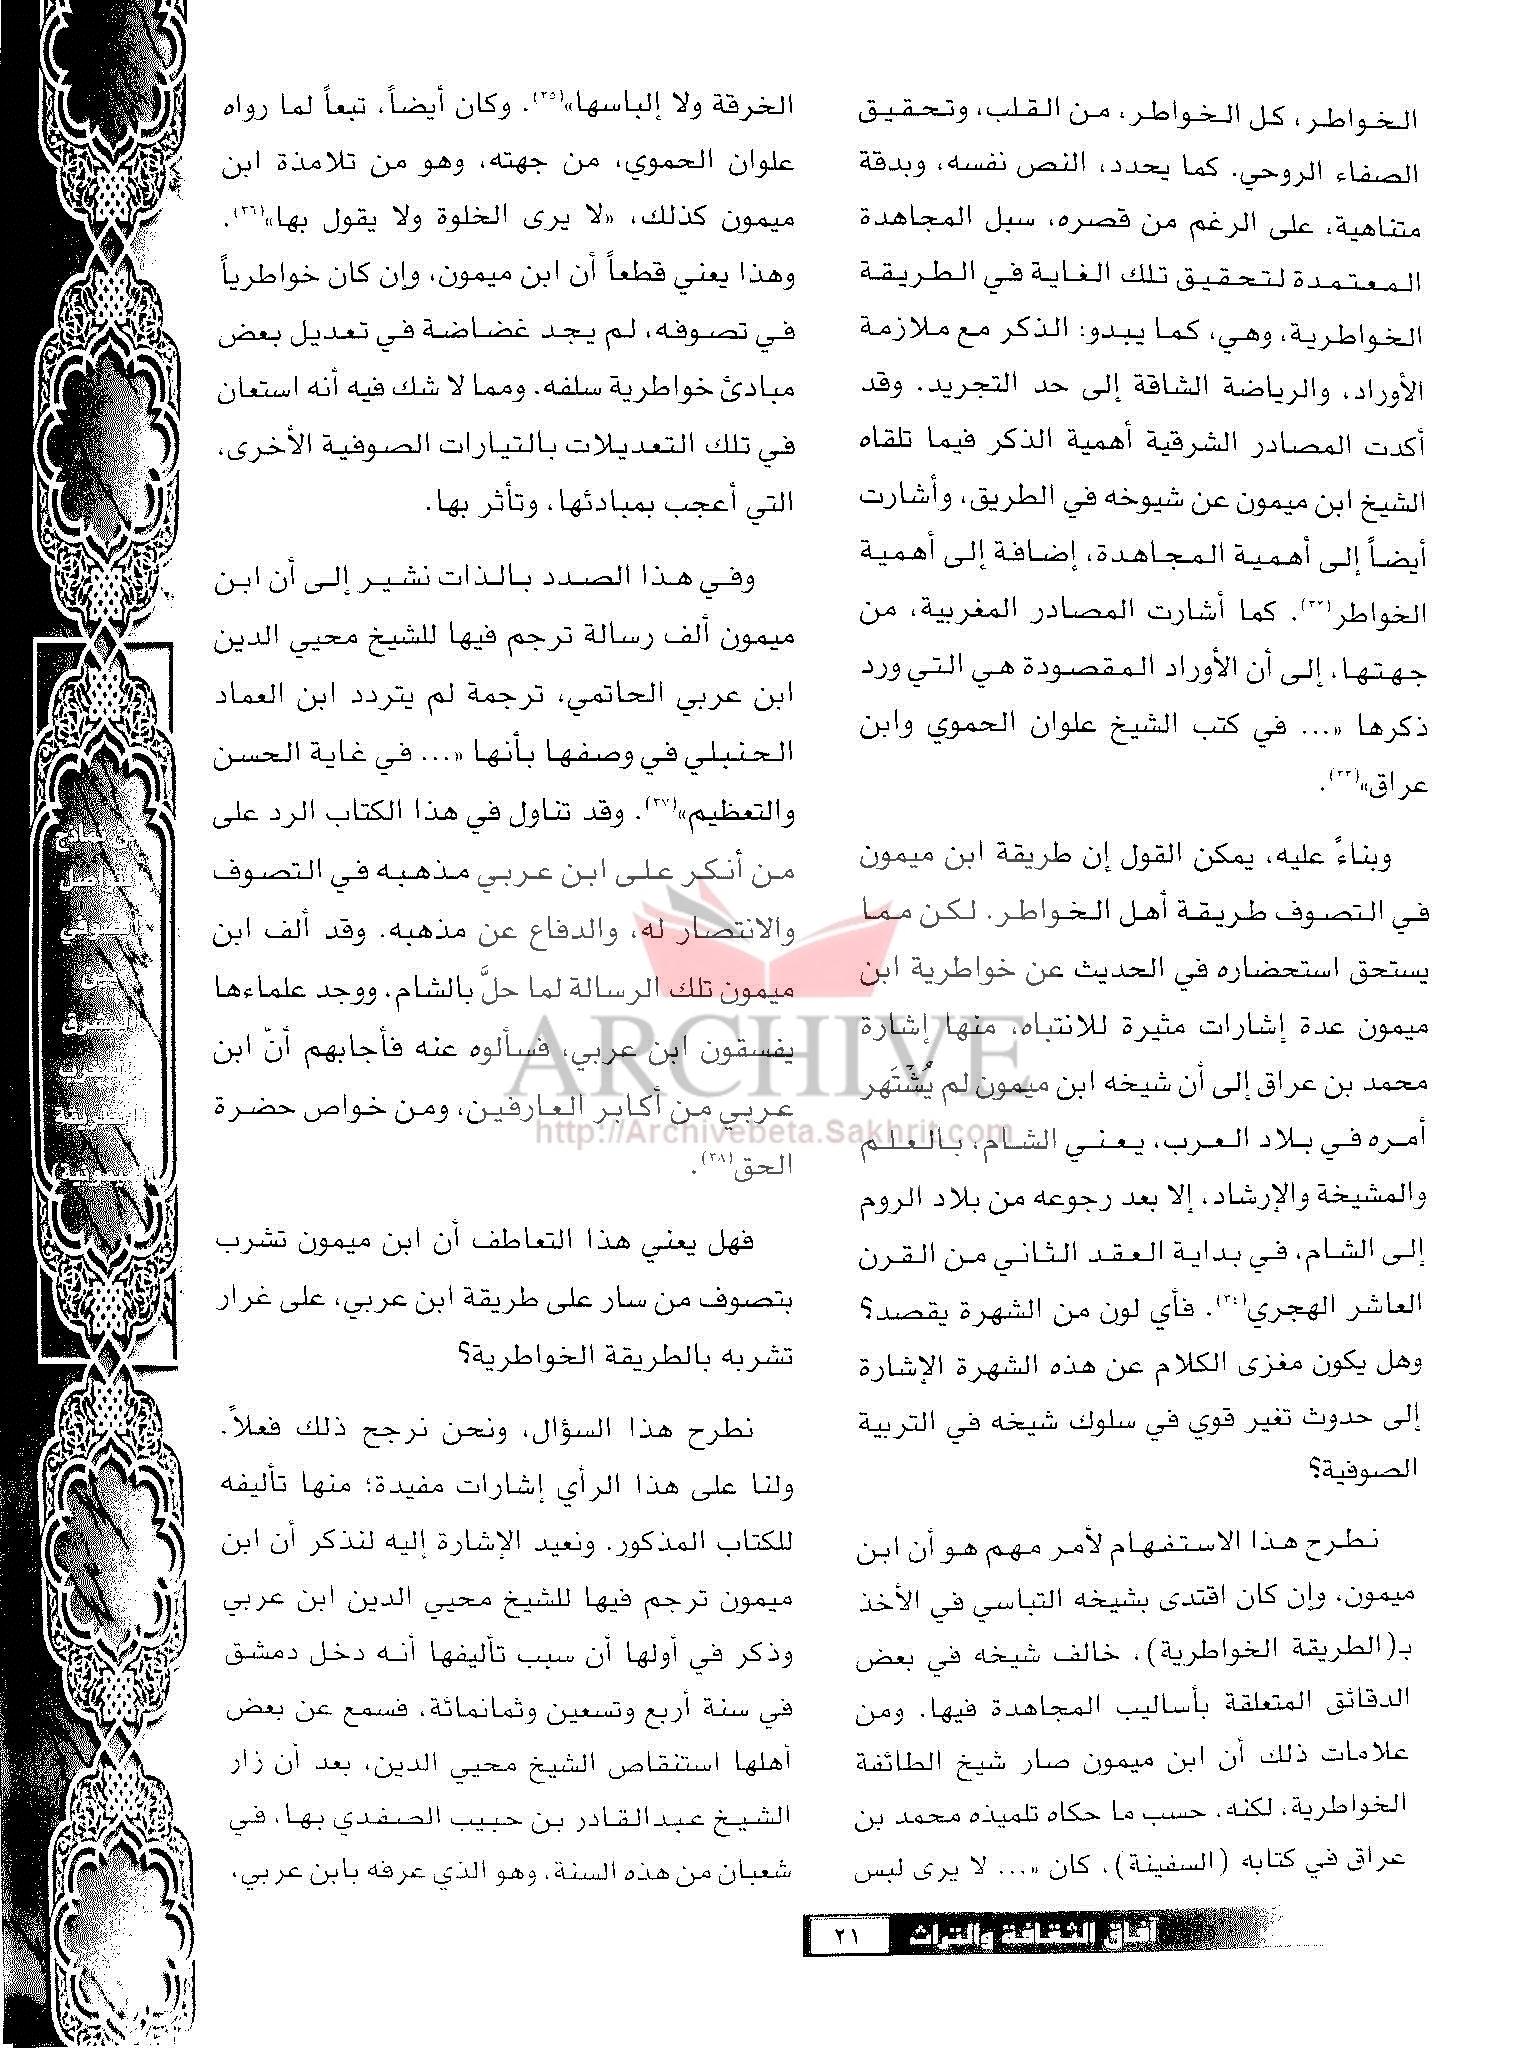 الخواطر، كل الخواطر، من القلب، وتحقيق
الصفاء الروحي. كما يحدد، النص نفسه، وبدقة
متناهية، على الرغم من قصره، سبل المجاهدة
المعتمدة لتحقيق تلك الغاية في الطريقة
الخواطرية، وهي، كما يبدو: الذكر مع ملازمة
الأوراد، والرياضة الشاقة إلى حد التجريد. وقد
أكدت المصادر الشرقية أهمية الذكر فيما تلقاه
الشيخ ابن ميمون عن شيوخه في الطريق، وأشارت
أيضاً إلى أهمية المجاهدة، إضافة إلى أهمية
الخواطر(٣٢). كما أشارت المصادر المغربية، من
جهتها، إلى أن الأوراد المقصودة هي التي ورد
ذكرها «... في كتب الشيخ علوان الحموي وابن
عراق»(٣٣).
وبناءً عليه، يمكن القول إن طريقة ابن ميمون
في التصوف طريقة أهل الخواطر. لكن مما
يستحق استحضاره في الحديث عن خواطرية ابن
ميمون عدة إشارات مثيرة للانتباه، منها إشارة
محمد بن عراق إلى أن شيخه ابن ميمون لم يُشْتَهَر
أمره في بلاد العرب، يعني الشام، بالعلم
والمشيخة والإرشاد، إلا بعد رجوعه من بلاد الروم
إلى الشام، في بداية العقد الثاني من القرن
العاشر الهجري(٣٤). فأي لون من الشهرة يقصد؟
وهل يكون مغزى الكلام عن هذه الشهرة الإشارة
إلى حدوث تغير قوي في سلوك شيخه في التربية
الصوفية؟
نطرح هذا الاستفهام لأمر مهم هو أن ابن
ميمون، وإن كان اقتدى بشيخه التباسي في الأخذ
بـ(الطريقة الخواطرية)، خالف شيخه في بعض
الدقائق المتعلقة بأساليب المجاهدة فيها. ومن
علامات ذلك أن ابن ميمون صار شيخ الطائفة
الخواطرية، لكنه، حسب ما حكاه تلميذه محمد بن
عراق في كتابه (السفينة)، كان «... لا يرى لبس
الخرقة ولا إلباسها»(٣٥). وكان أيضاً، تبعاً لما رواه
علوان الحموي، من جهته، وهو من تلامذة ابن
ميمون كذلك، «لا يرى الخلوة ولا يقول بها»(٣٦).
وهذا يعني قطعاً أن ابن ميمون، وإن كان خواطرياً
في تصوفه، لم يجد غضاضة في تعديل بعض
مبادئ خواطرية سلفه. ومما لا شك فيه أنه استعان
في تلك التعديلات بالتيارات الصوفية الأخرى،
التي أعجب بمبادئها، وتأثر بها.
وفي هذا الصدد بالذات نشير إلى أن ابن
ميمون ألف رسالة ترجم فيها للشيخ محيي الدين
ابن عربي الحاتمي، ترجمة لم يتردد ابن العماد
الحنبلي في وصفها بأنها «... في غاية الحسن
والتعظيم»(٣٧). وقد تناول في هذا الكتاب الرد على
من أنكر على ابن عربي مذهبه في التصوف
والانتصار له، والدفاع عن مذهبه. وقد ألف ابن
ميمون تلك الرسالة لما حلَّ بالشام، ووجد علماءها
يفسقون ابن عربي، فسألوه عنه فأجابهم أنّ ابن
عربي من أكابر العارفين، ومن خواص حضرة
الحق(٣٨).
فهل يعني هذا التعاطف أن ابن ميمون تشرب
بتصوف من سار على طريقة ابن عربي، على غرار
تشربه بالطريقة الخواطرية؟
نطرح هذا السؤال، ونحن نرجح ذلك فعلاً.
ولنا على هذا الرأي إشارات مفيدة؛ منها تأليفه
للكتاب المذكور. ونعيد الإشارة إليه لنذكر أن ابن
ميمون ترجم فيها للشيخ محيي الدين ابن عربي
وذكر في أولها أن سبب تأليفها أنه دخل دمشق
في سنة أربع وتسعين وثمانمائة، فسمع عن بعض
أهلها استنقاص الشيخ محيي الدين، بعد أن زار
الشيخ عبدالقادر بن حبيب الصفدي بها، في
شعبان من هذه السنة، وهو الذي عرفه بابن عربي،
ARCHIVE
http://Archivebeta.Sakhrit.com
آفاق الثقافة والتراث ٢١